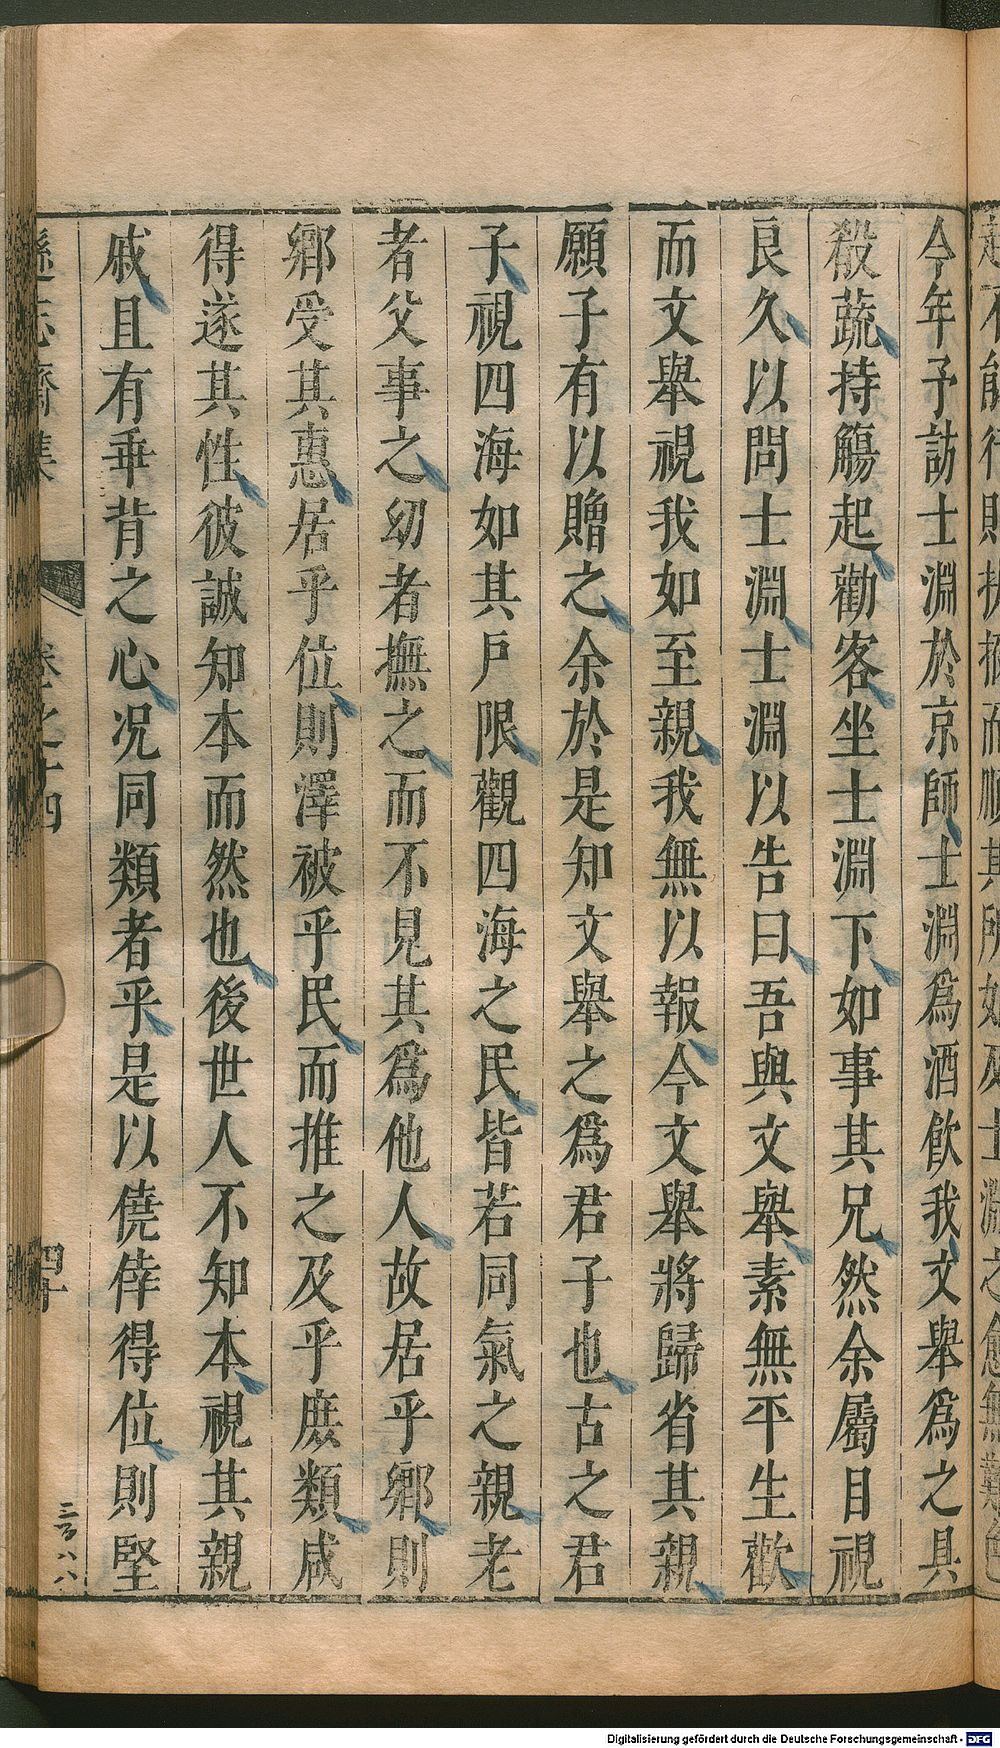 今年予訪士淵於京師士淵爲酒飲我文舉爲之具
殽蔬持觴起勸客坐士淵下如事其兄然余屬目視
良久以問士淵士淵以告曰吾與文舉素無平生歡
而文舉視我如至親我無以報今文舉將歸省其親
願子有以贈之余於是知文舉之爲君子也古之君
子視四海如其戶限觀四海之民皆若同氣之親老
者父事之幼者撫之而不見其爲他人故居乎鄉則
鄉受其惠居乎位則澤被乎民而推之及乎庶類咸
得遂其性彼誠知本而然也後世人不知本視其親
戚且有乖背之心況同類者乎是以僥倖得位則堅
遜志齋集 卷之十四 四十
Digitalisierung gefördert durch die Deutsche Forschungsgemeinschaft - DFG